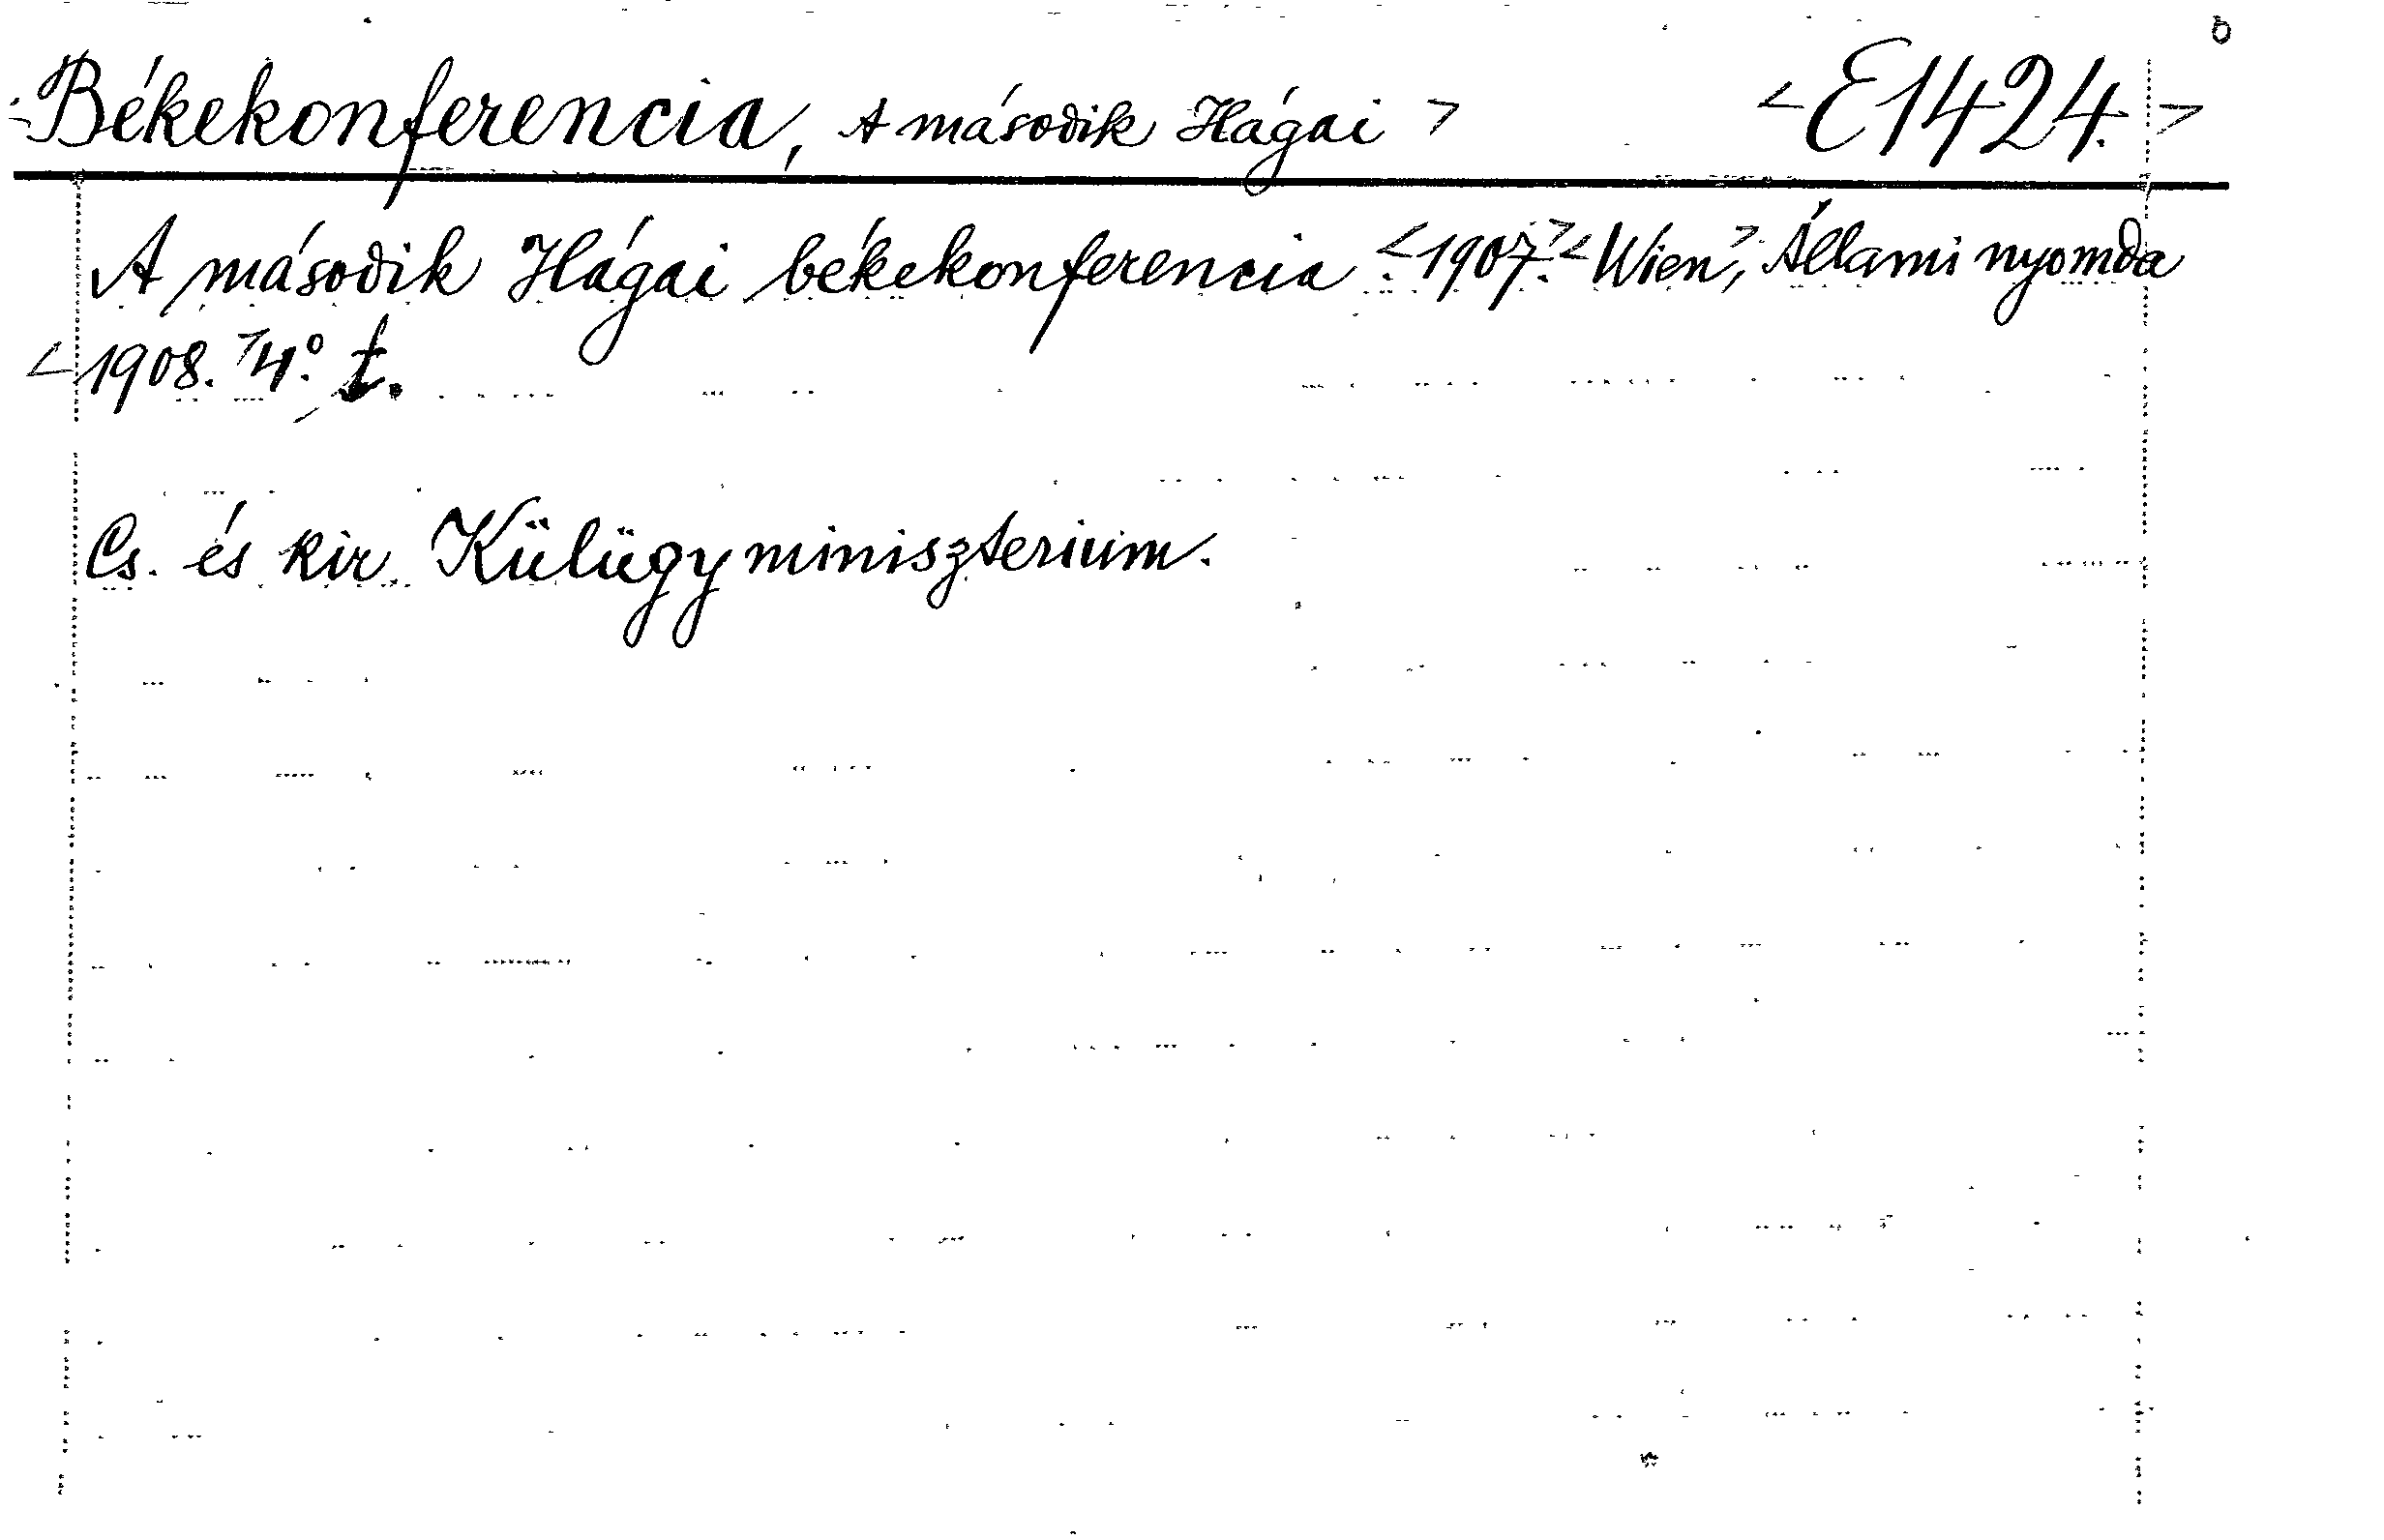 Békekonferencia, A második Hágai > <E1424.>
A második Hágai békekonferencia <1907.> <Wien>, Állami nyomda
<1908.> 4° t.
Cs. és kir. Külügyminiszterium.